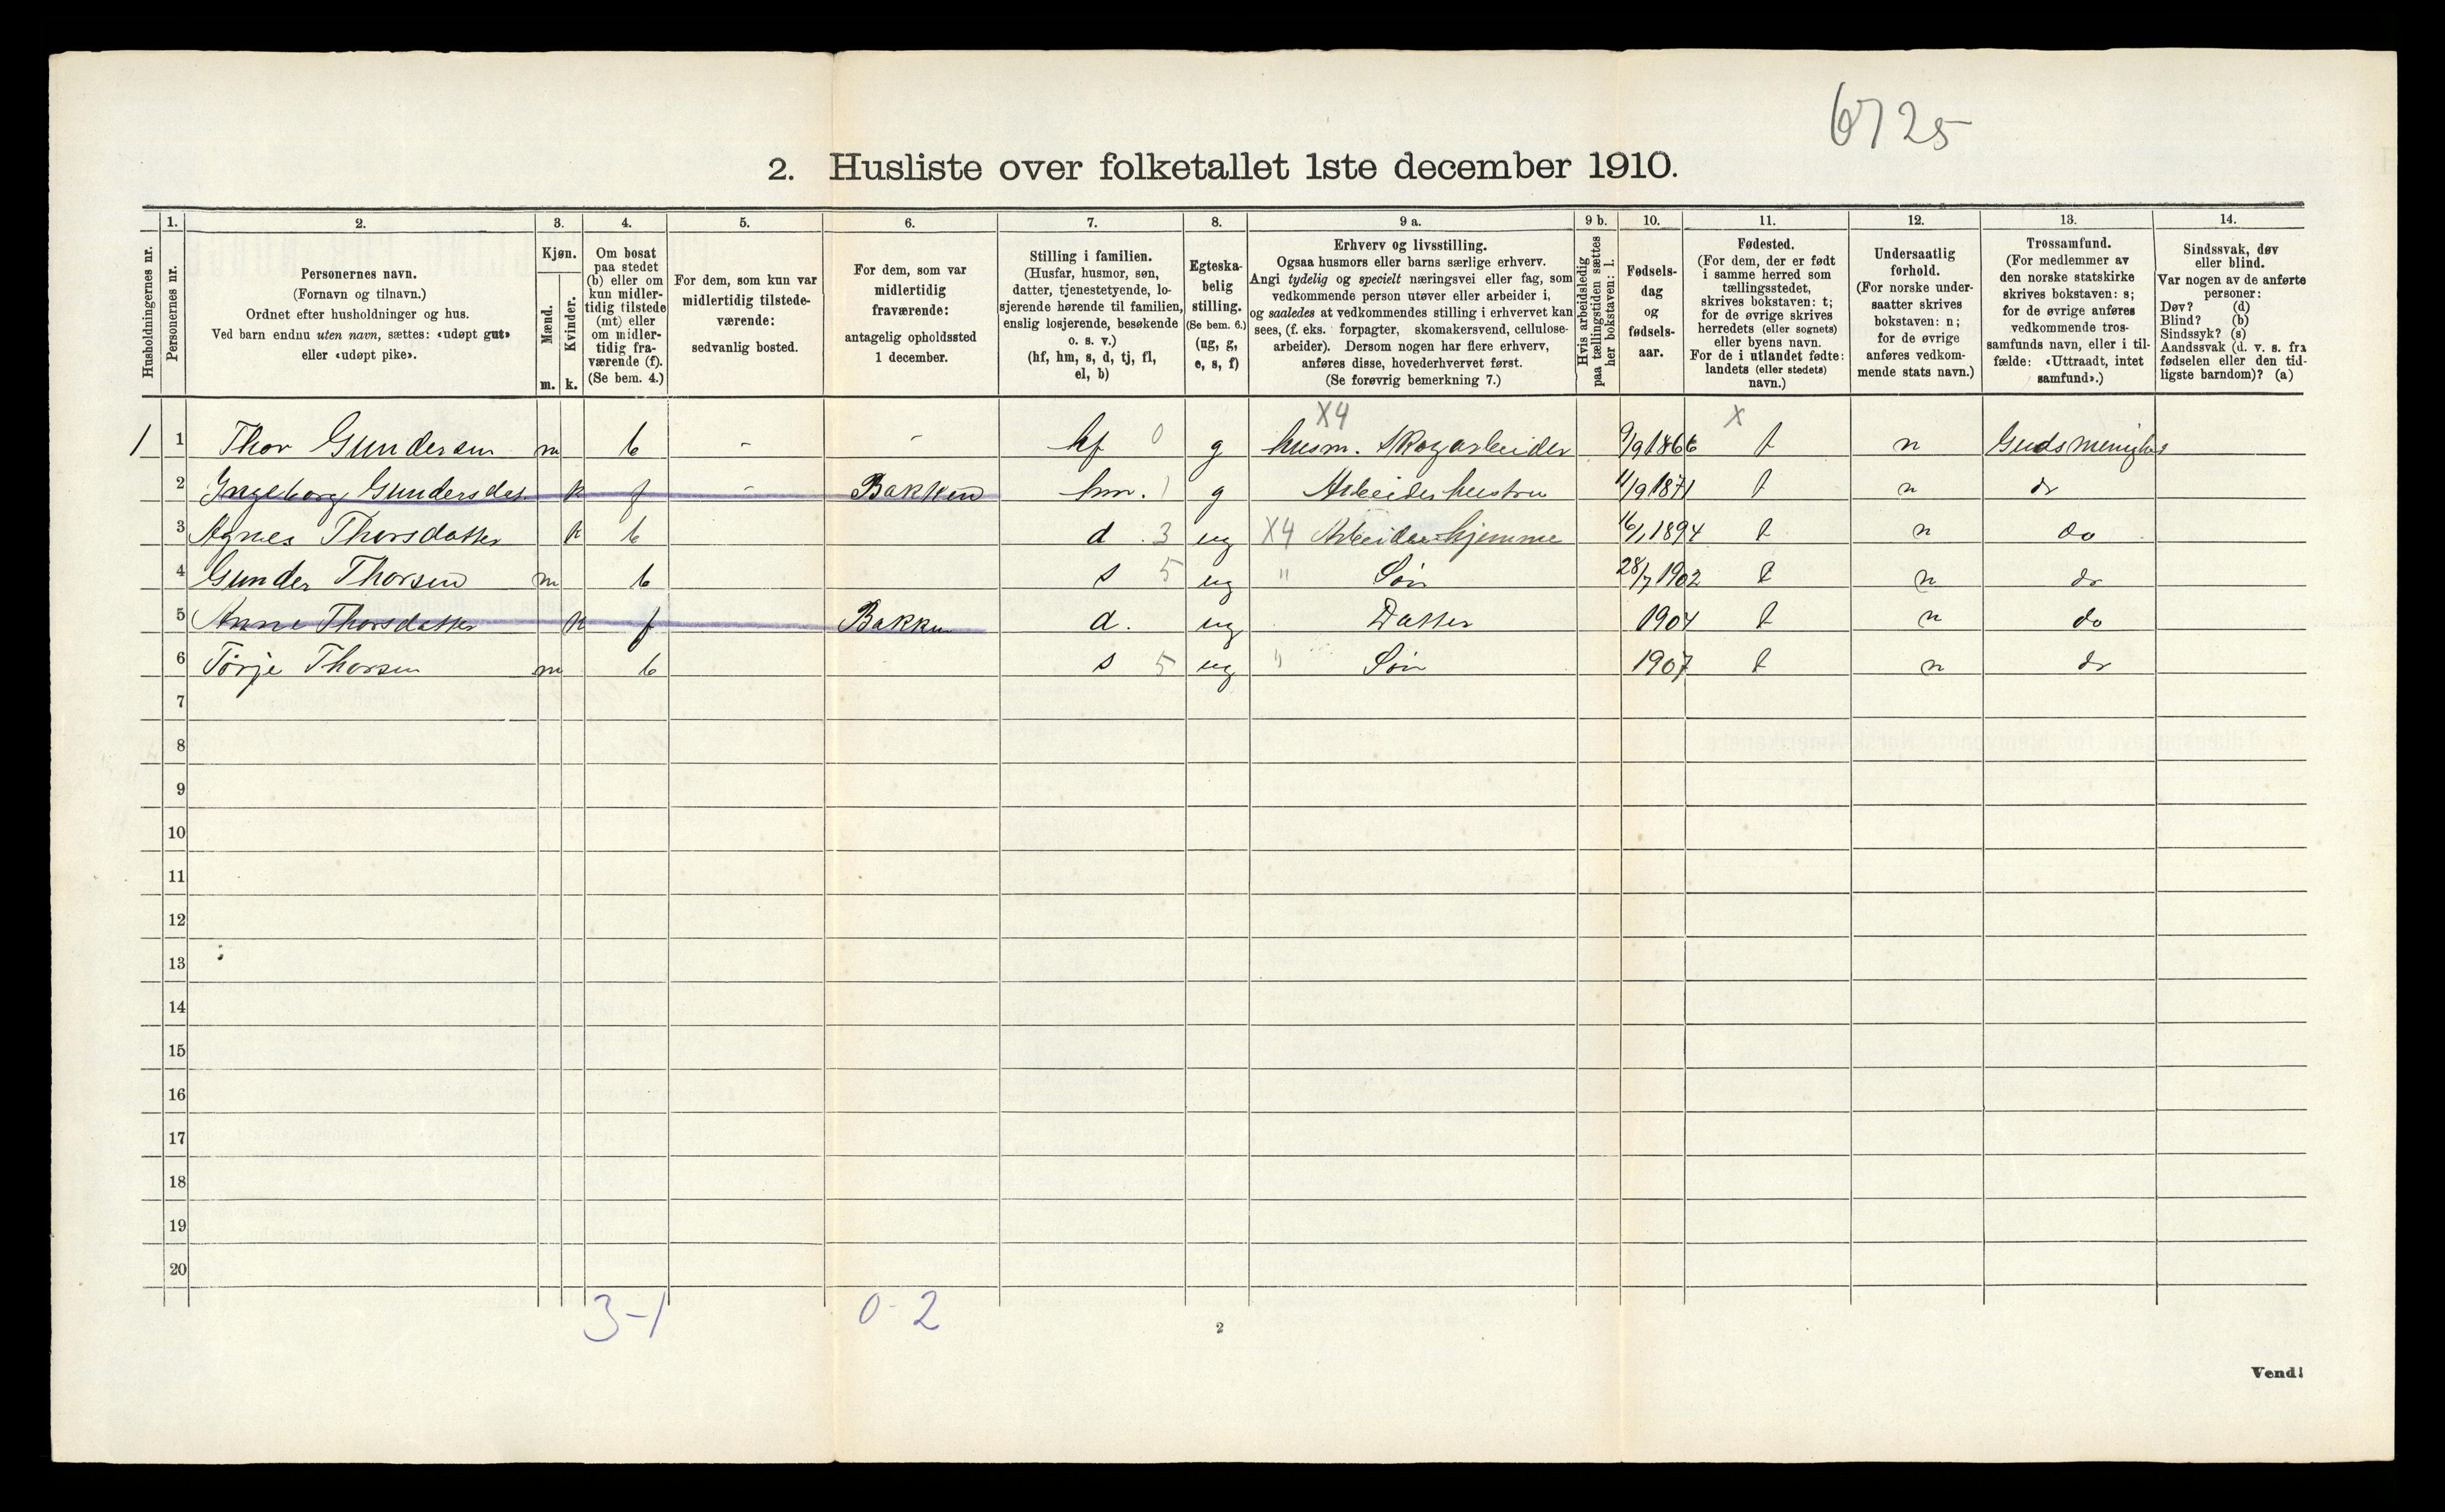 6725
2. Husliste over folketallet 1ste december 1910.
Husholdningernes nr.
1.
Personernes nr.
2.
Personernes navn.
(Fornavn og tilnavn.)
Ordnet efter husholdninger og hus.
Ved barn endnu uten navn, sættes: «udøpt gut»
eller «udøpt pike».
3.
Kjøn.
Mænd.
Kvinder.
m. k.
4.
Om bosat
paa stedet
(b) eller om
kun midler-
tidig tilstede
(mt) eller
om midler-
tidig fra-
værende (f).
(Se bem. 4.)
5.
For dem, som kun var
midlertidig tilstede-
værende:
sedvanlig bosted.
6.
For dem, som var
midlertidig
fraværende:
antagelig opholdssted
1 december.
7.
Stilling i familien.
(Husfar, husmor, søn,
datter, tjenestetyende, lo-
sjerende hørende til familien,
enslig losjerende, besøkende
o. s. v.)
(hf, hm, s, d, tj, fl,
el, b)
8.
Egteska-
belig
stilling.
(Se bem. 6.)
(ug, g,
e, s, f)
9 a.
Erhverv og livsstilling.
Ogsaa husmors eller barns særlige erhverv.
Angi tydelig og specielt næringsvei eller fag, som
vedkommende person utøver eller arbeider i,
og saaledes at vedkommendes stilling i erhvervet kan
sees, (f. eks. forpagter, skomakersvend, cellulose-
arbeider). Dersom nogen har flere erhverv,
anføres disse, hovederhvervet først.
(Se forøvrig bemerkning 7.)
9 b.
Hvis arbeidsledig
paa tællingstiden sættes
her bokstaven: l.
10.
Fødsels-
dag
og
fødsels-
aar.
11.
Fødested.
(For dem, der er født
i samme herred som
tællingsstedet,
skrives bokstaven: t;
for de øvrige skrives
herredets (eller sognets)
eller byens navn.
For de i utlandet fødte:
landets (eller stedets)
navn.)
12.
Undersaatlig
forhold.
(For norske under-
saatter skrives
bokstaven: n;
for de øvrige
anføres vedkom-
mende stats navn.)
13.
Trossamfund.
(For medlemmer av
den norske statskirke
skrives bokstaven: s;
for de øvrige anføres
vedkommende tros-
samfunds navn, eller i til-
fælde: «Uttraadt, intet
samfund».)
14.
Sindssvak, døv
eller blind.
Var nogen av de anførte
personer:
Døv? (d)
Blind? (b)
Sindssyk? (s)
Aandssvak (d. v. s. fra
fødselen eller den tid-
ligste barndom)? (a)
X4 X
1 1 Thor Gundersen m b - - hf 0 g husm. Skogarbeider 9/9 1866 t n Guds menighed
2 Ingeborg Gundersdat. k f - Bakken hm. 1 g Arbeiderhustru 11/9 1871 t n do
3 Agnes Thorsdatter k b d 3 ug X4 Arbeider hjemme 16/1 1894 t n do
4 Gunder Thorsen m b s 5 ug " Søn 28/7 1902 t n do
5 Anne Thorsdatter k f Bakken d. ug Datter 1904 t n do
6 Tørje Thorsen m b s 5 ug " Søn 1907 t n do
7
8
9
10
11
12
13
14
15
16
17
18
19
20
3-1 0-2
2
Vend!